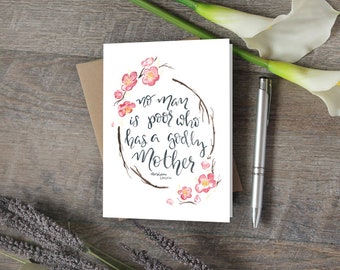 no man
is poor who
has a godly
Mother